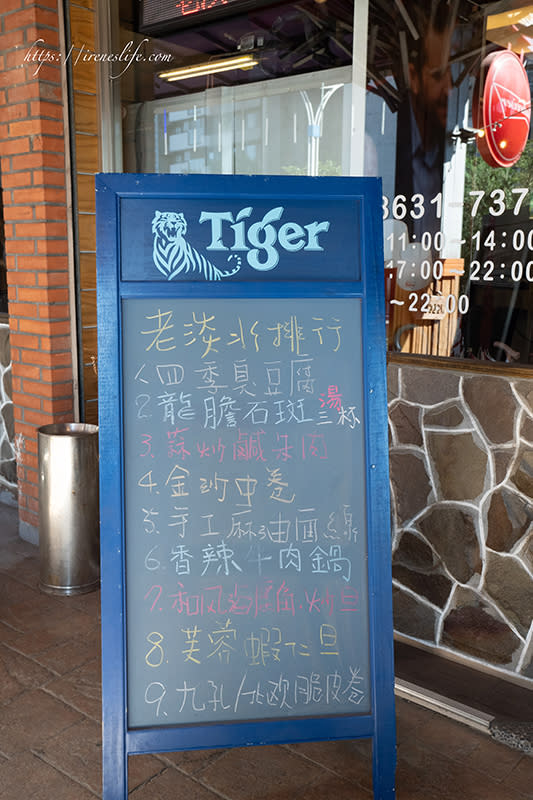 https://ireneslife.com
Tiger
老淡水排行
1.四季臭豆腐
2.龍膽石斑湯三杯
3.蒜炒鹹呆肉
4.金沙中卷
5.手工麻油面線
6.香辣牛肉鍋
7.和风 炒旦
8.芙蓉蝦仁旦
9.九孔/北欧脆皮卷
8631-737
11:00~14:00
17:00~22:00
~22:00